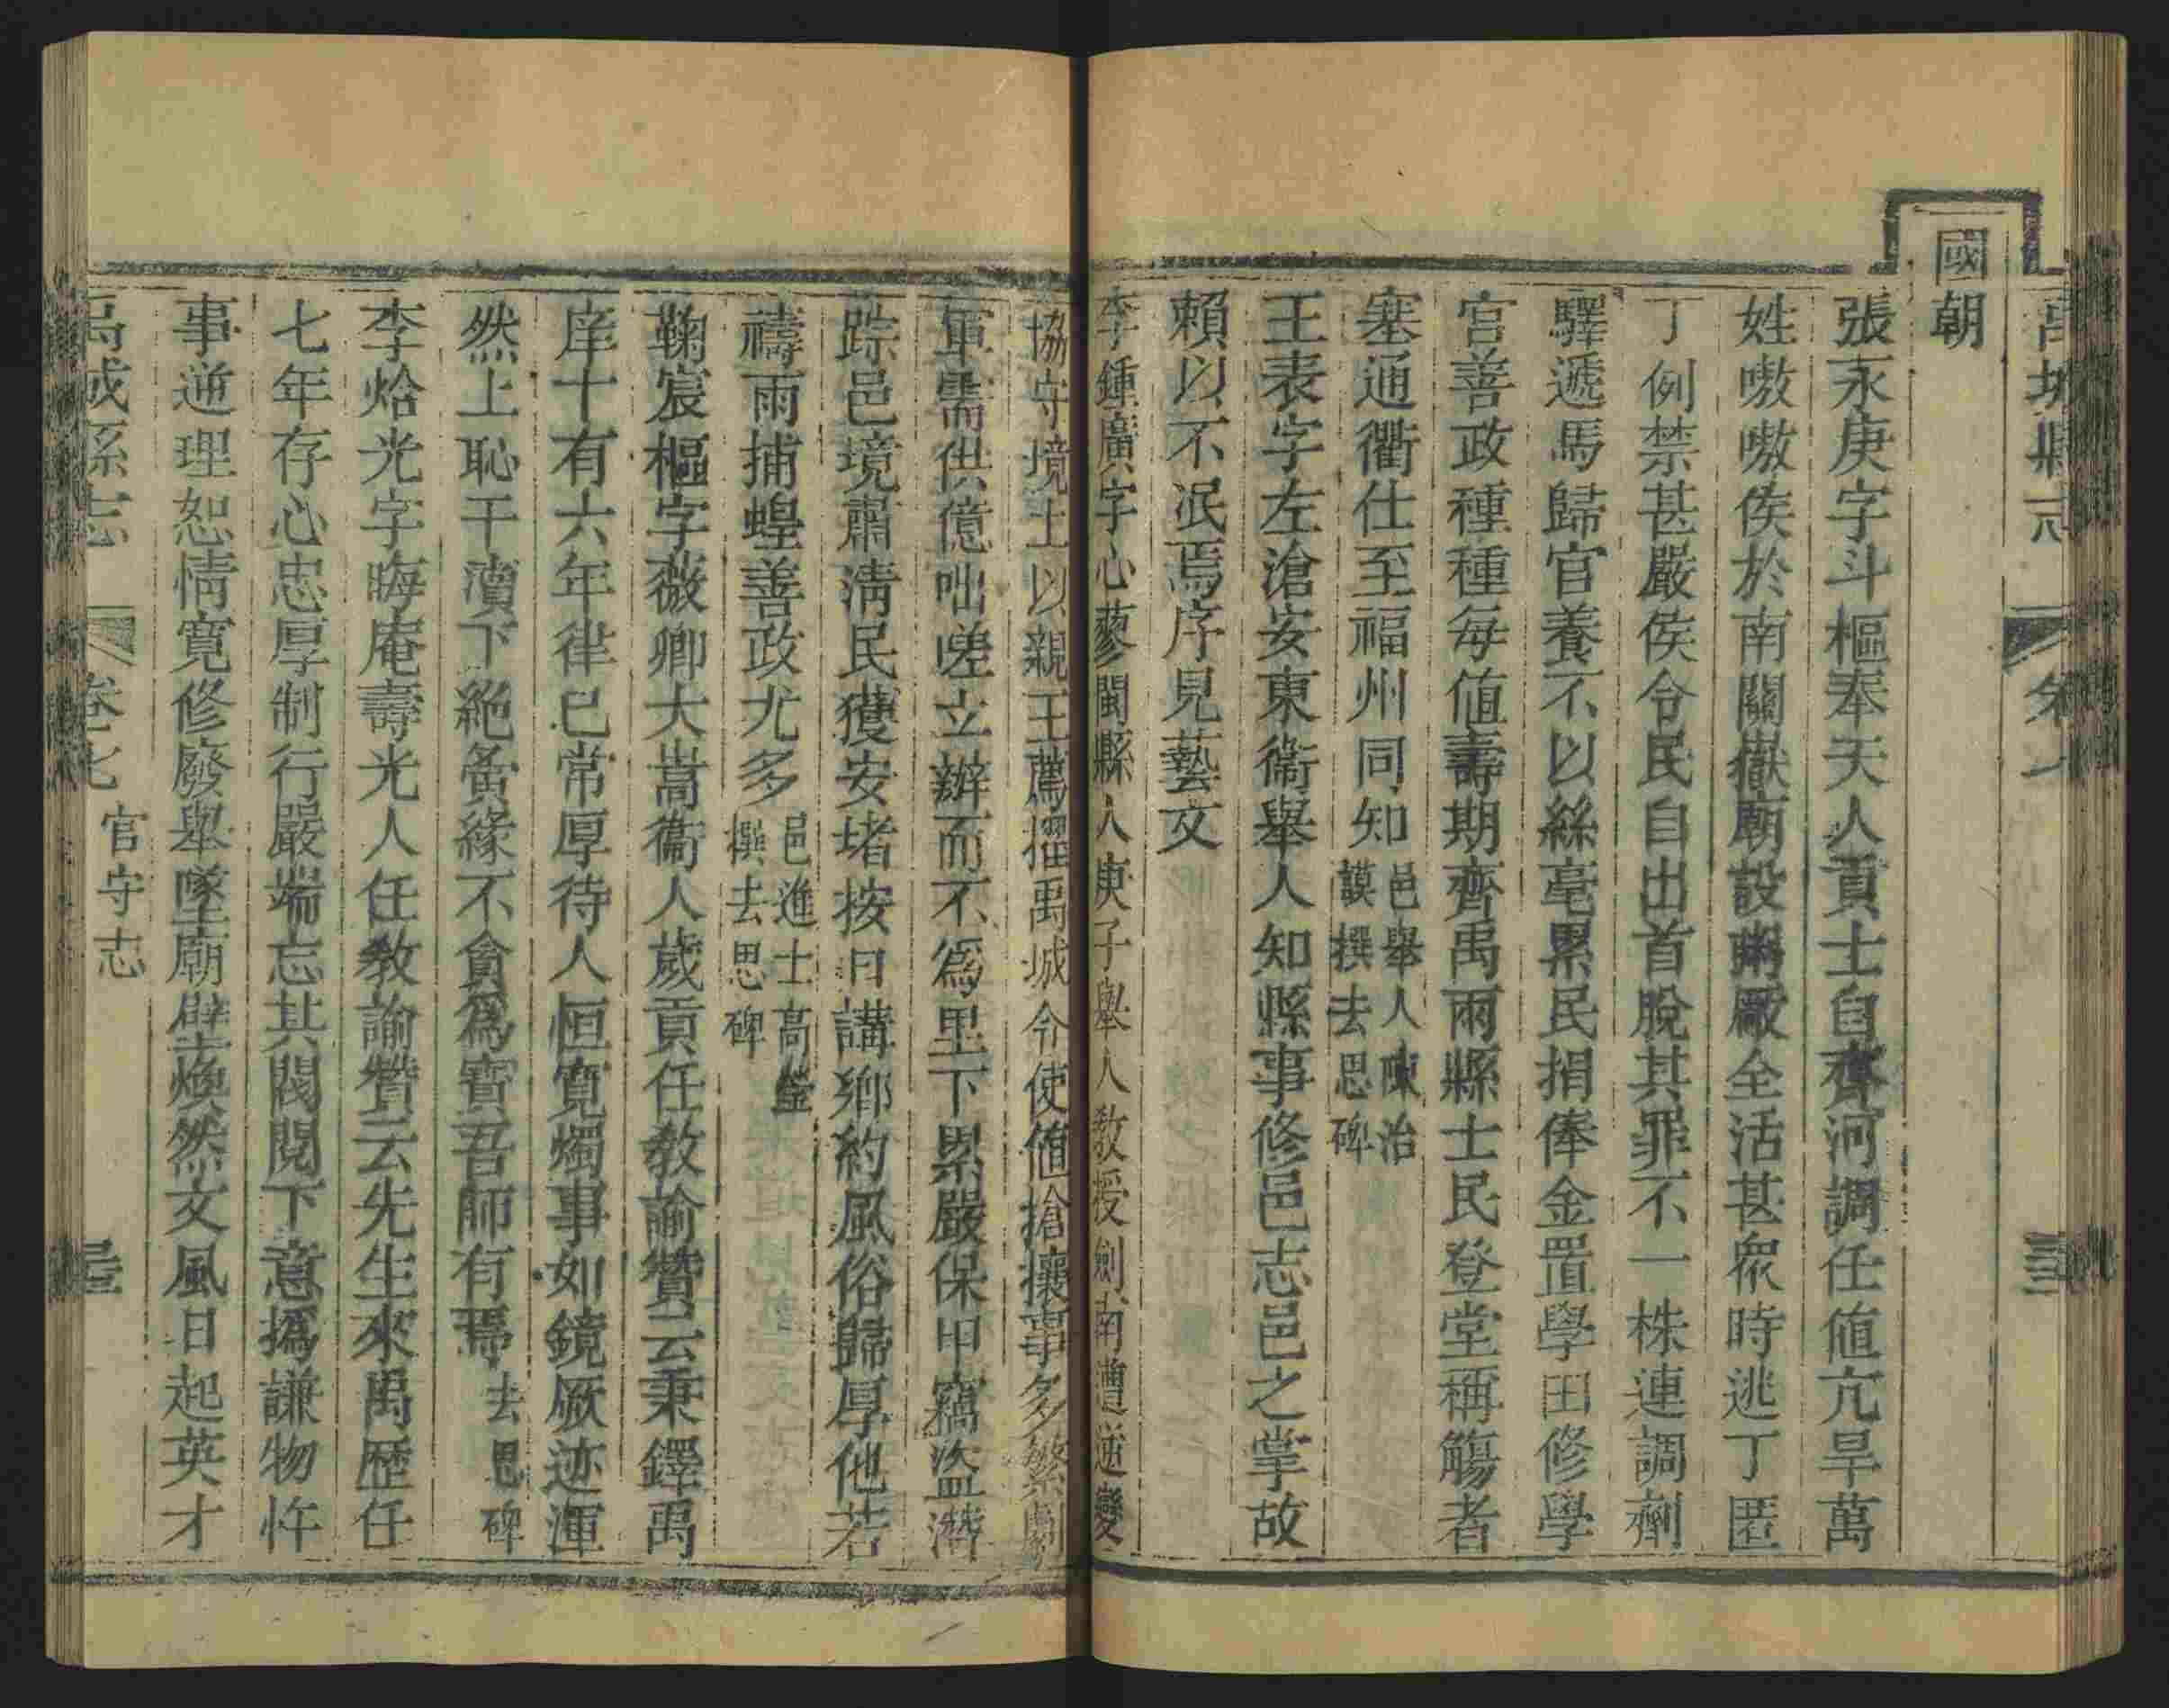 禹城縣志
國朝
張永庚字斗樞奉天人貢士自齊河調任值亢旱萬
姓嗷嗷侯於南關嶽廟設粥厰全活甚眾時逃丁匿
丁例禁甚嚴侯令民自出首脫其罪不一株連調劑
驛遞馬歸官養不以絲毫累民捐俸金置學田修學
宮善政種種每值壽期齊禹兩縣士民登堂稱觴者
塞通衢仕至福州同知邑舉人陳治謨撰去思碑
王表字左滄安東衞舉人知縣事修邑志邑之掌故
賴以不泯焉序見藝文
李鍾廣字心蓼閩縣人庚子舉人教授劍南遭逆變
協守境土以親王薦擢禹城令使值搶攘事多繁劇
軍需供億咄嗟立辦而不爲里下累嚴保甲竊盜潛
踪邑境肅淸民獲安堵按日講鄉約風俗歸厚他若
禱雨捕蝗善政尤多邑進士高鎣撰去思碑
鞠宸樞字薇卿大嵩衞人歲貢任教諭贊云秉鐸禹
庠十有六年律已常厚待人恒寬燭事如鏡厥迹渾
然上恥干瀆下絕夤緣不貪爲寶吾師有焉去思碑
李烚光字晦庵壽光人任教諭贊云先生來禹歷任
七年存心忠厚制行嚴端忘其閥閱下意撝謙物忤
事逆理恕情寬修廢舉墜廟壁煥然文風日起英才
禹城縣志 卷七 官守志